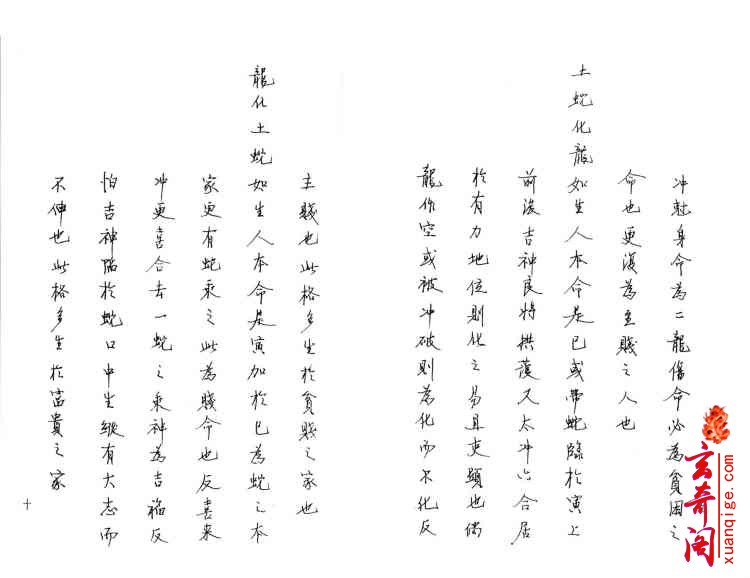 冲尅身命為二龍傷命必為貧困之
命也更復為至賤之人也
土蛇化龍如生人本命是巳或帶蛇臨於寅上
前後吉神良將拱護又太冲六合居
於有力地位則化之易且更顯也倘
龍作空或被冲破則為化而不化反
主賤也此格多生於貧賤之家也
龍化土蛇如生人本命是寅加於巳為蛇之本
家更有蛇乘之此為賤命也反喜来
冲更喜合去一蛇之乘神為吉福反
怕吉神陷於蛇口中生縱有大志而
不伸也此格多生於富貴之家
十
玄奇阁
xuanqige.com